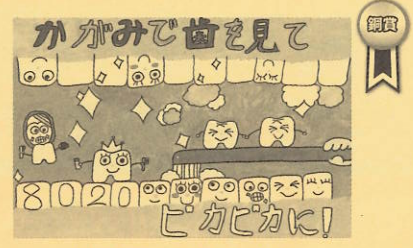 かがみで歯を見て
銅賞
8020
ピカピカに!